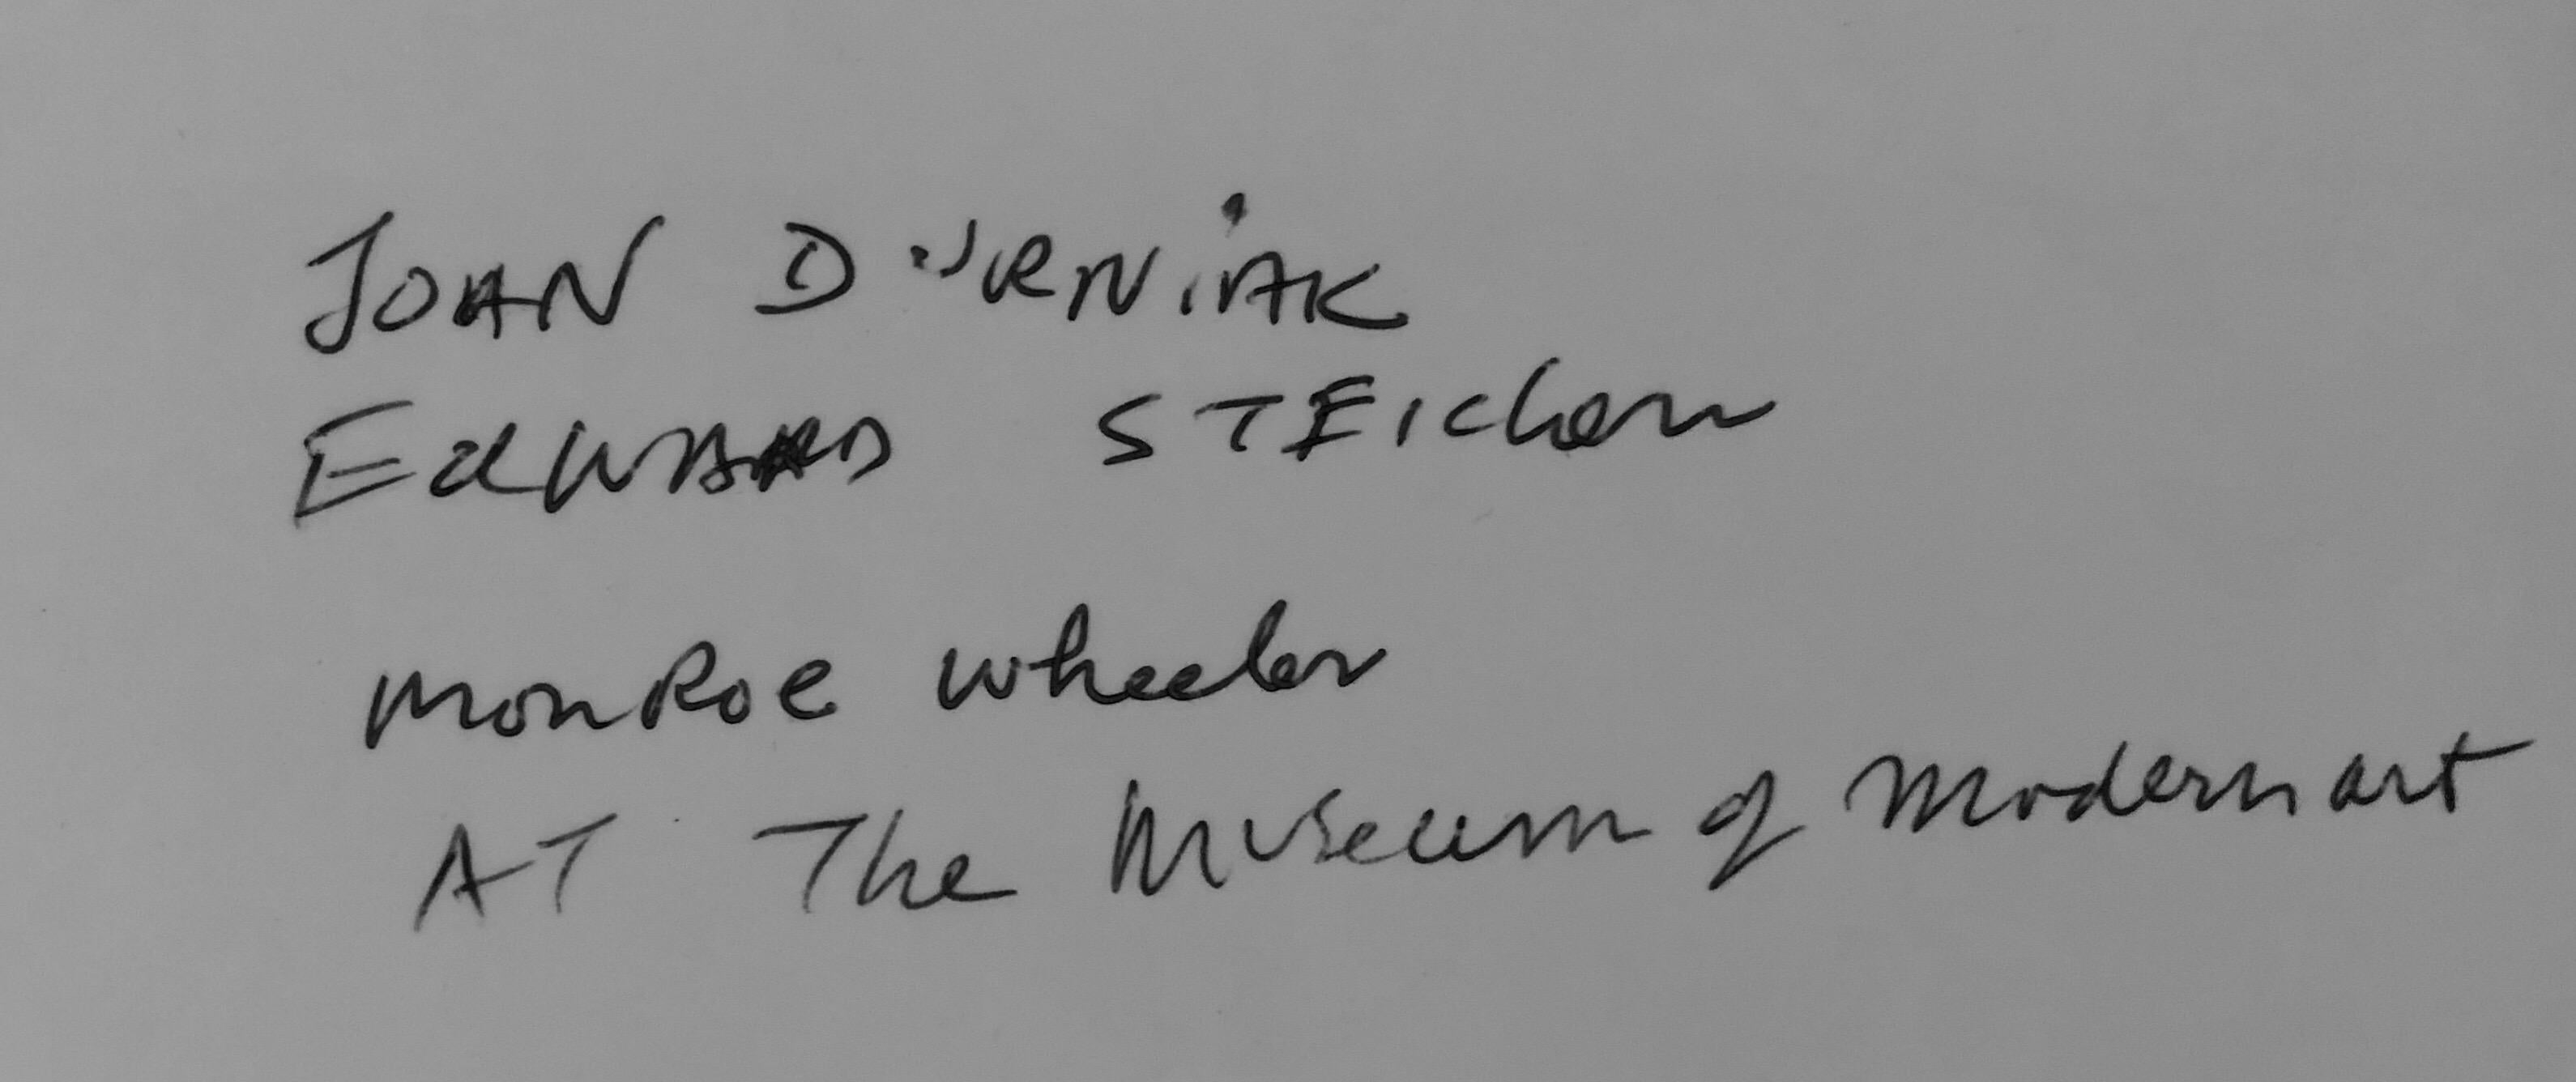 JOHN DURNiAK
EdWARD STEIchen
MonRoe wheeler
AT The Museum of Modern art